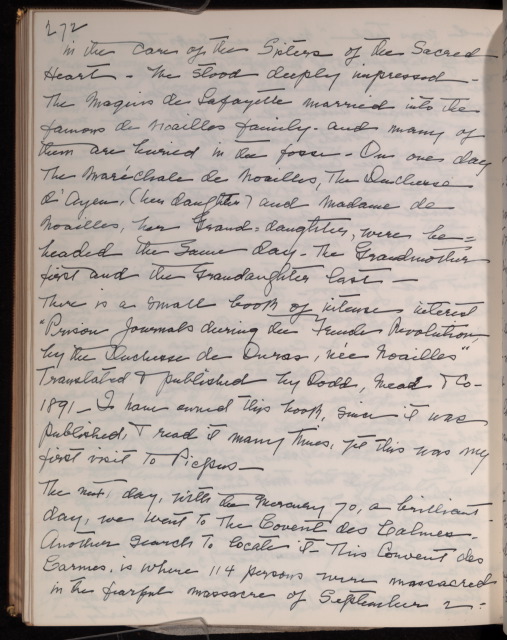 272
in the care of the Sisters of the Sacred
Heart - We stood deeply impressed -
The Maquis de Lafayette married into the
famous de Noailles family - and many of
them are buried in the fosse - On one day
The Maréchale de Noailles, The Duchesse
d'Ayen, (her daughter) and Madame de
Noailles, her Grand=daughter, were be=
headed the same day - The Grandmother
first and the Grandaughter last -
There is a small book of intense interest
"Prison Journals during the French Revolution,
by the Duchesse de Duras, née Noailles"
Translated & published by Dodd, Mead & Co-
1891 - I have owned this book, since it was
published, & read it many times, yet this was my
first visit to Picpus -
The next, day, with the Mercury 70, a brilliant
day, we went to The Covent des Calmes -
Another search to locate it - This Convent des
Carmes, is where 114 persons were massacred
in the fearful massacre of September 2 -